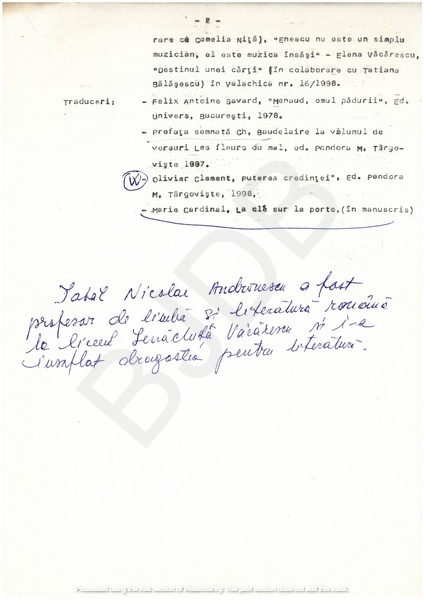 - 2 -
rare cu Camelia Niţă), "Enescu nu este un simplu
muzician, el este muzica însăşi" - Elena Văcărescu,
"Destinul unei cărţi" (în colaborare cu Tatiana
Bălăşescu) în Valachica nr. 16/1998.
Traduceri: - Felix Antoine Savard, "Menaud, omul pădurii", Ed.
Univers, Bucureşti, 1978.
- Prefaţa semnată Ch, Baudelaire la volumul de
versuri Les fleurs du mal, ed. Pandora M, Târgo-
vişte 1997.
- Olivier Clement, puterea credinţei", Ed. Pandora
M, Târgovişte, 1998,
- Marie Cardinal, La clé sur la porte,(în manuscris)
Tatăl Nicolae Andronescu a fost
profesor de limbă şi literatură română
la liceul Ienăchiţă Văcărescu şi i-a
insuflat dragostea pentru literatură.
BJDB